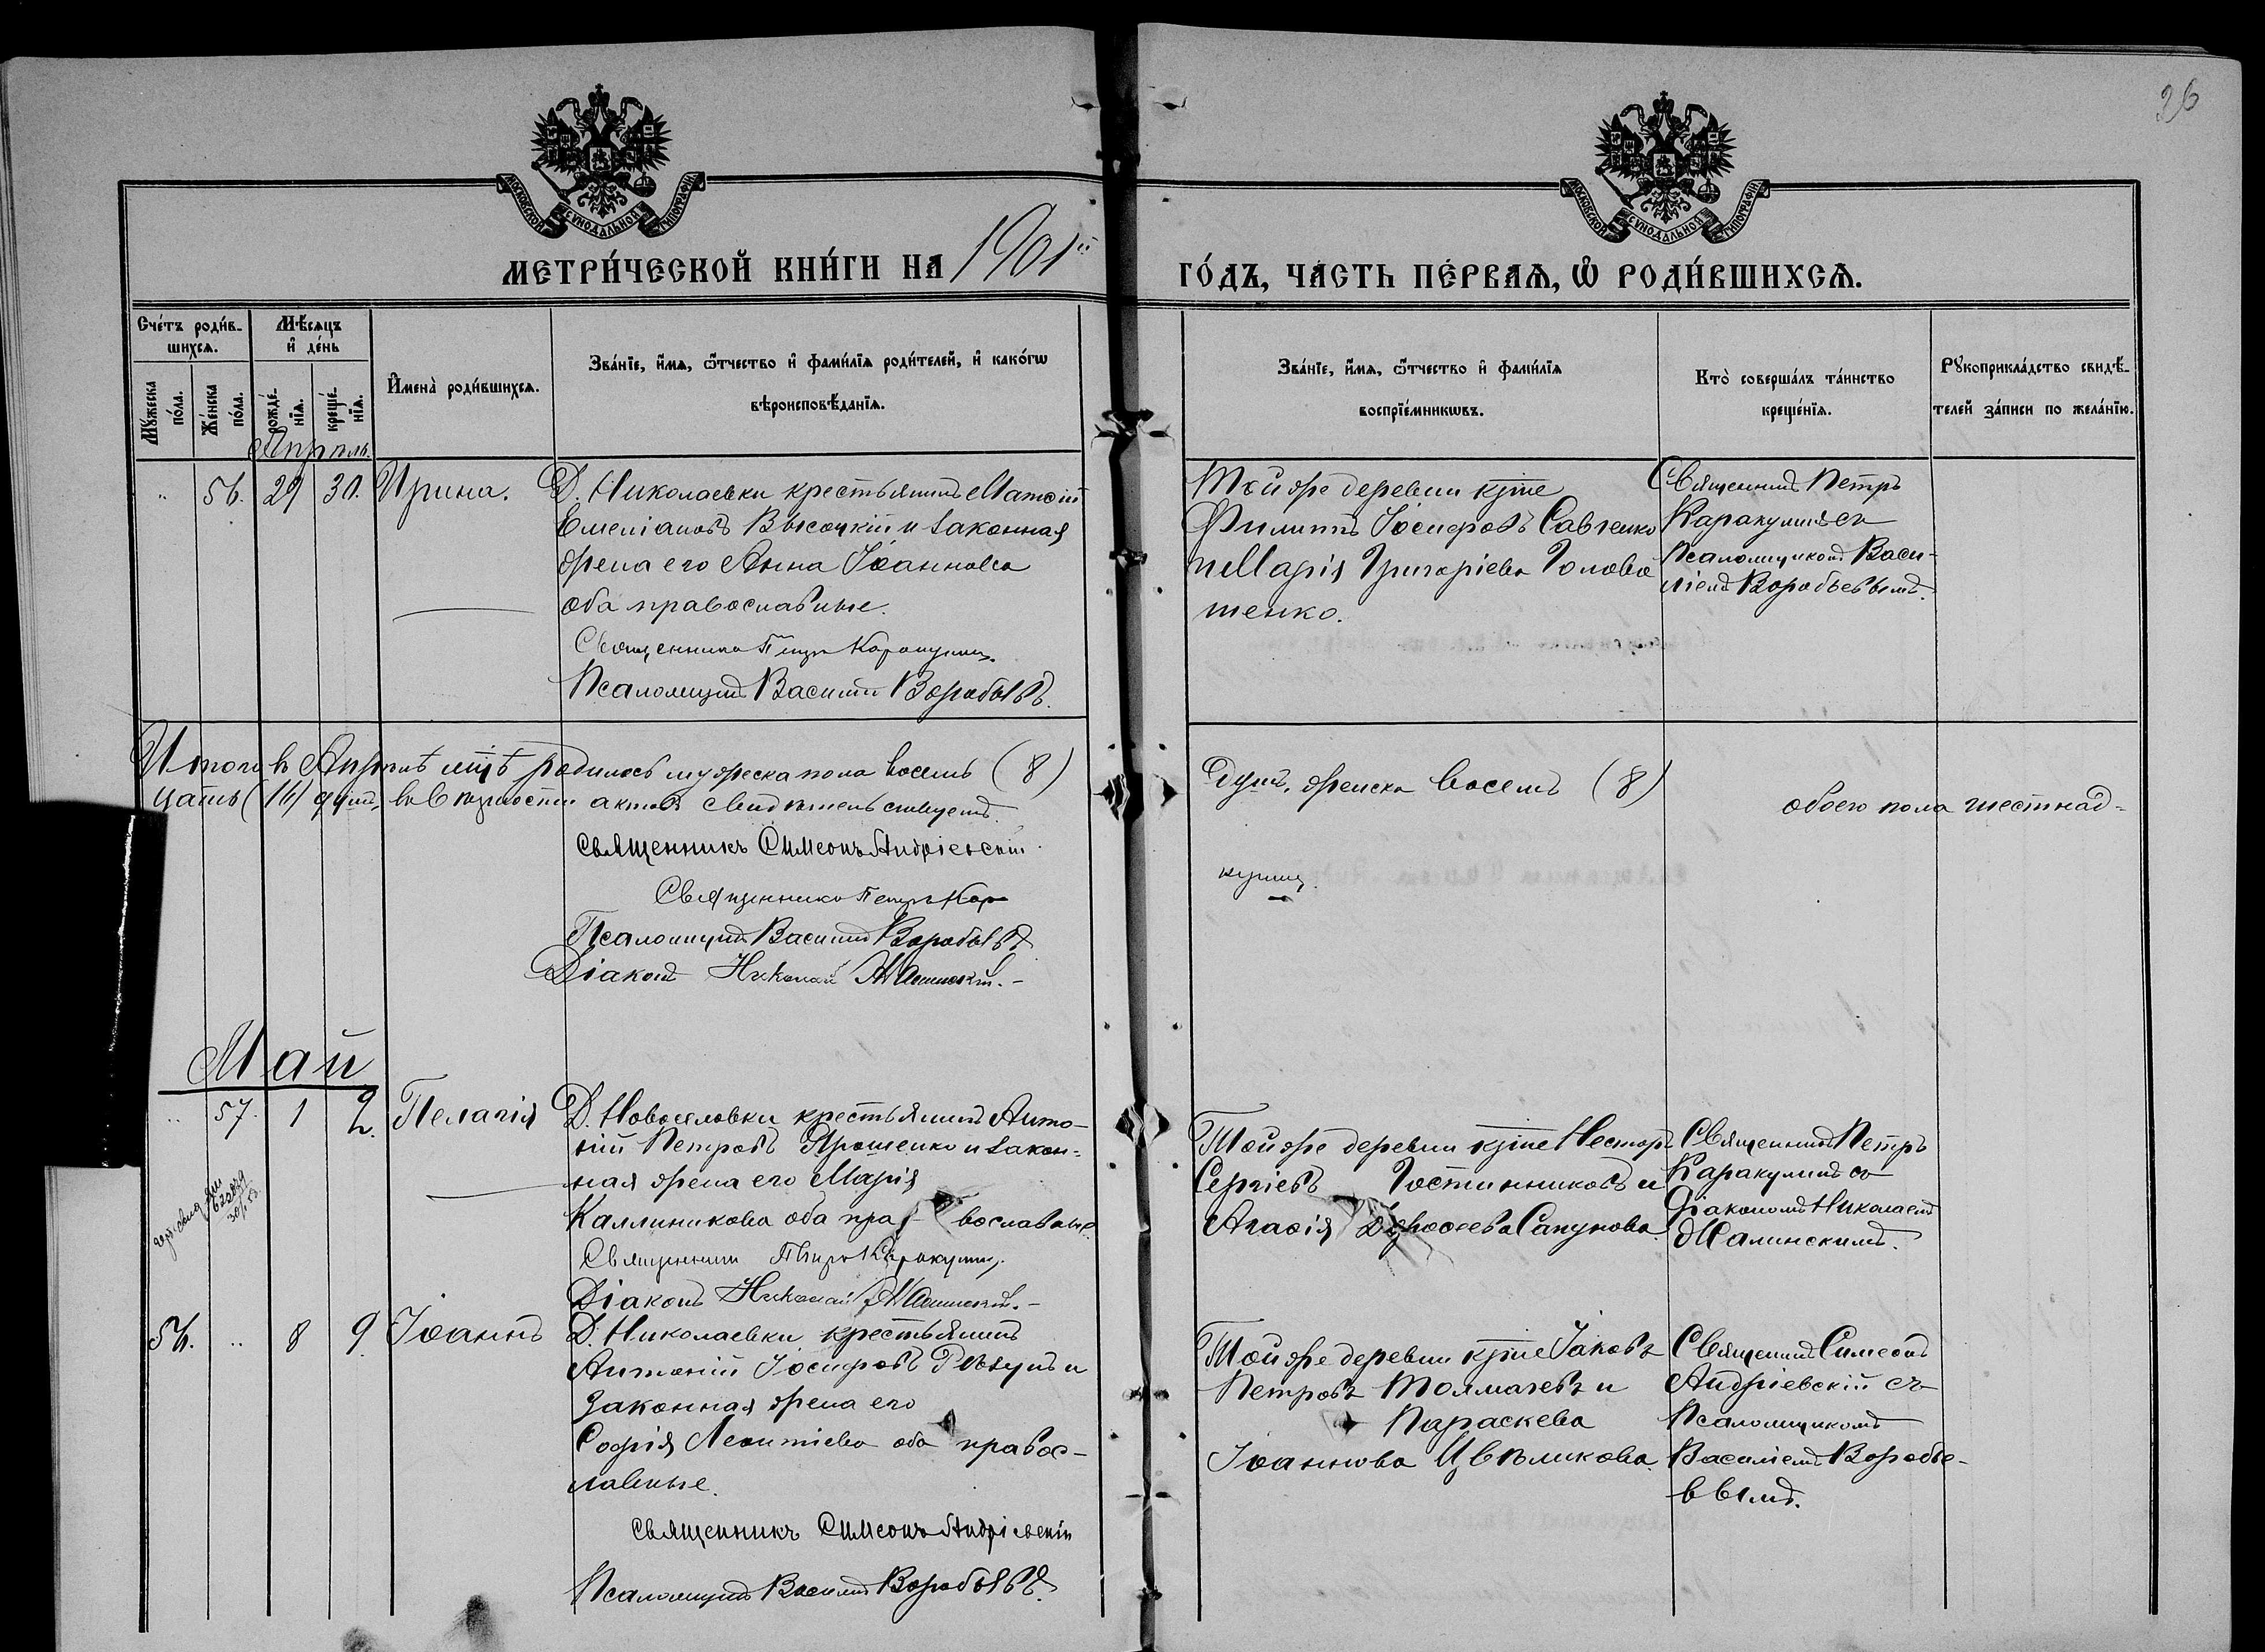 26
МОСКОВСКОЙ СѴНОДАЛЬНОЙ ТИПОГРАФІИ
МОСКОВСКОЙ СѴНОДАЛЬНОЙ ТИПОГРАФІИ
МЕТРИ́ЧЕСКОЙ КНИ́ГИ НА 1901й
ГО́ДЪ, ЧА́СТЬ ПЕ́РВАѦ, Ѿ РОДИ́ВШИХСѦ.
Сче́тъ роди́в-
шихсѧ.
Мꙋ́жеска
по́ла.
Же́нска
по́ла.
Мѣ́сѧцъ
и҆ де́нь
рожде́-
нїѧ.
креще́-
нїѧ.
И҆мена̀ роди́вшихсѧ.
Зва́нїе, и҆́мѧ, ѻ҆́тчество и҆ фами́лїѧ роди́телей, и҆ како́гѡ
вѣроисповѣ́данїѧ.
Зва́нїе, и҆́мѧ, ѻ҆́тчество и҆ фами́лїѧ
воспрїе́мникѡвъ.
Кто̀ соверша́лъ та́инство
креще́нїѧ.
Рꙋкоприкла́дство свидѣ́-
телей за́писи по жела́нїю.
Апрѣль
" 56. 29 30. Ирина.
Д. Николаевки крестьянинъ Матѳій
Емеліановъ Высочкій и законная
жена его Анна Іоаннова
оба православные.
Священникъ Петръ Каракулинъ.
Псаломщикъ Василій Воробьевъ.
Той же деревни кр҃не
Филиппъ Іосифовъ Савченко
и Марія Григоріева Голова
шенко.
Священникъ Петръ
Каракулинъ съ
Псаломщикомъ Васи-
ліемъ Воробьевымъ.
Итого въ Апрѣлѣ м҃цѣ родилось мужеска пола восемь (8)
душъ, женска восемь (8)
обоего пола шестнад-
цать (16) душъ, въ вѣрности актовъ свидѣтельствуемъ.
Священникъ Симеонъ Андріевскій.
Священникъ Петръ Кара
кулинъ.
Псаломщикъ Василій Воробьевъ
Діаконъ Николай Жалинскій.-
Май
" 57. 1 2. Пелагія
Д. Новоселовки крестьянинъ Анто-
ній Петровъ Ярошенко и закон-
ная жена его Марія
Каллиникова оба пра- вославные.
Священникъ Петръ Каракулинъ.
Діаконъ Николай Жалинскій.-
Той же деревни кр҃не Несторъ
Сергіевъ Гостинниковъ и
Агаѳія Дороѳеева Сапунова
Священникъ Петръ
Каракулинъ съ
Діакономъ Николаемъ
Жалинскимъ.
56. " 8 9. Іоаннъ
Д. Николаевки крестьянинъ
Антоній Іосифовъ Рѣзунъ и
законная жена его
Софія Леонтіева оба правос-
лавные.
Священникъ Симеонъ Андріевскій
Псаломщикъ Василій Воробьевъ.
Той же деревни кр҃не Іаковъ
Петровъ Толмачевъ и
Параскева
Іоаннова Цвѣликова.
Священникъ Симеонъ
Андріевскій съ
Псаломщикомъ
Василіемъ Воробье-
вымъ.